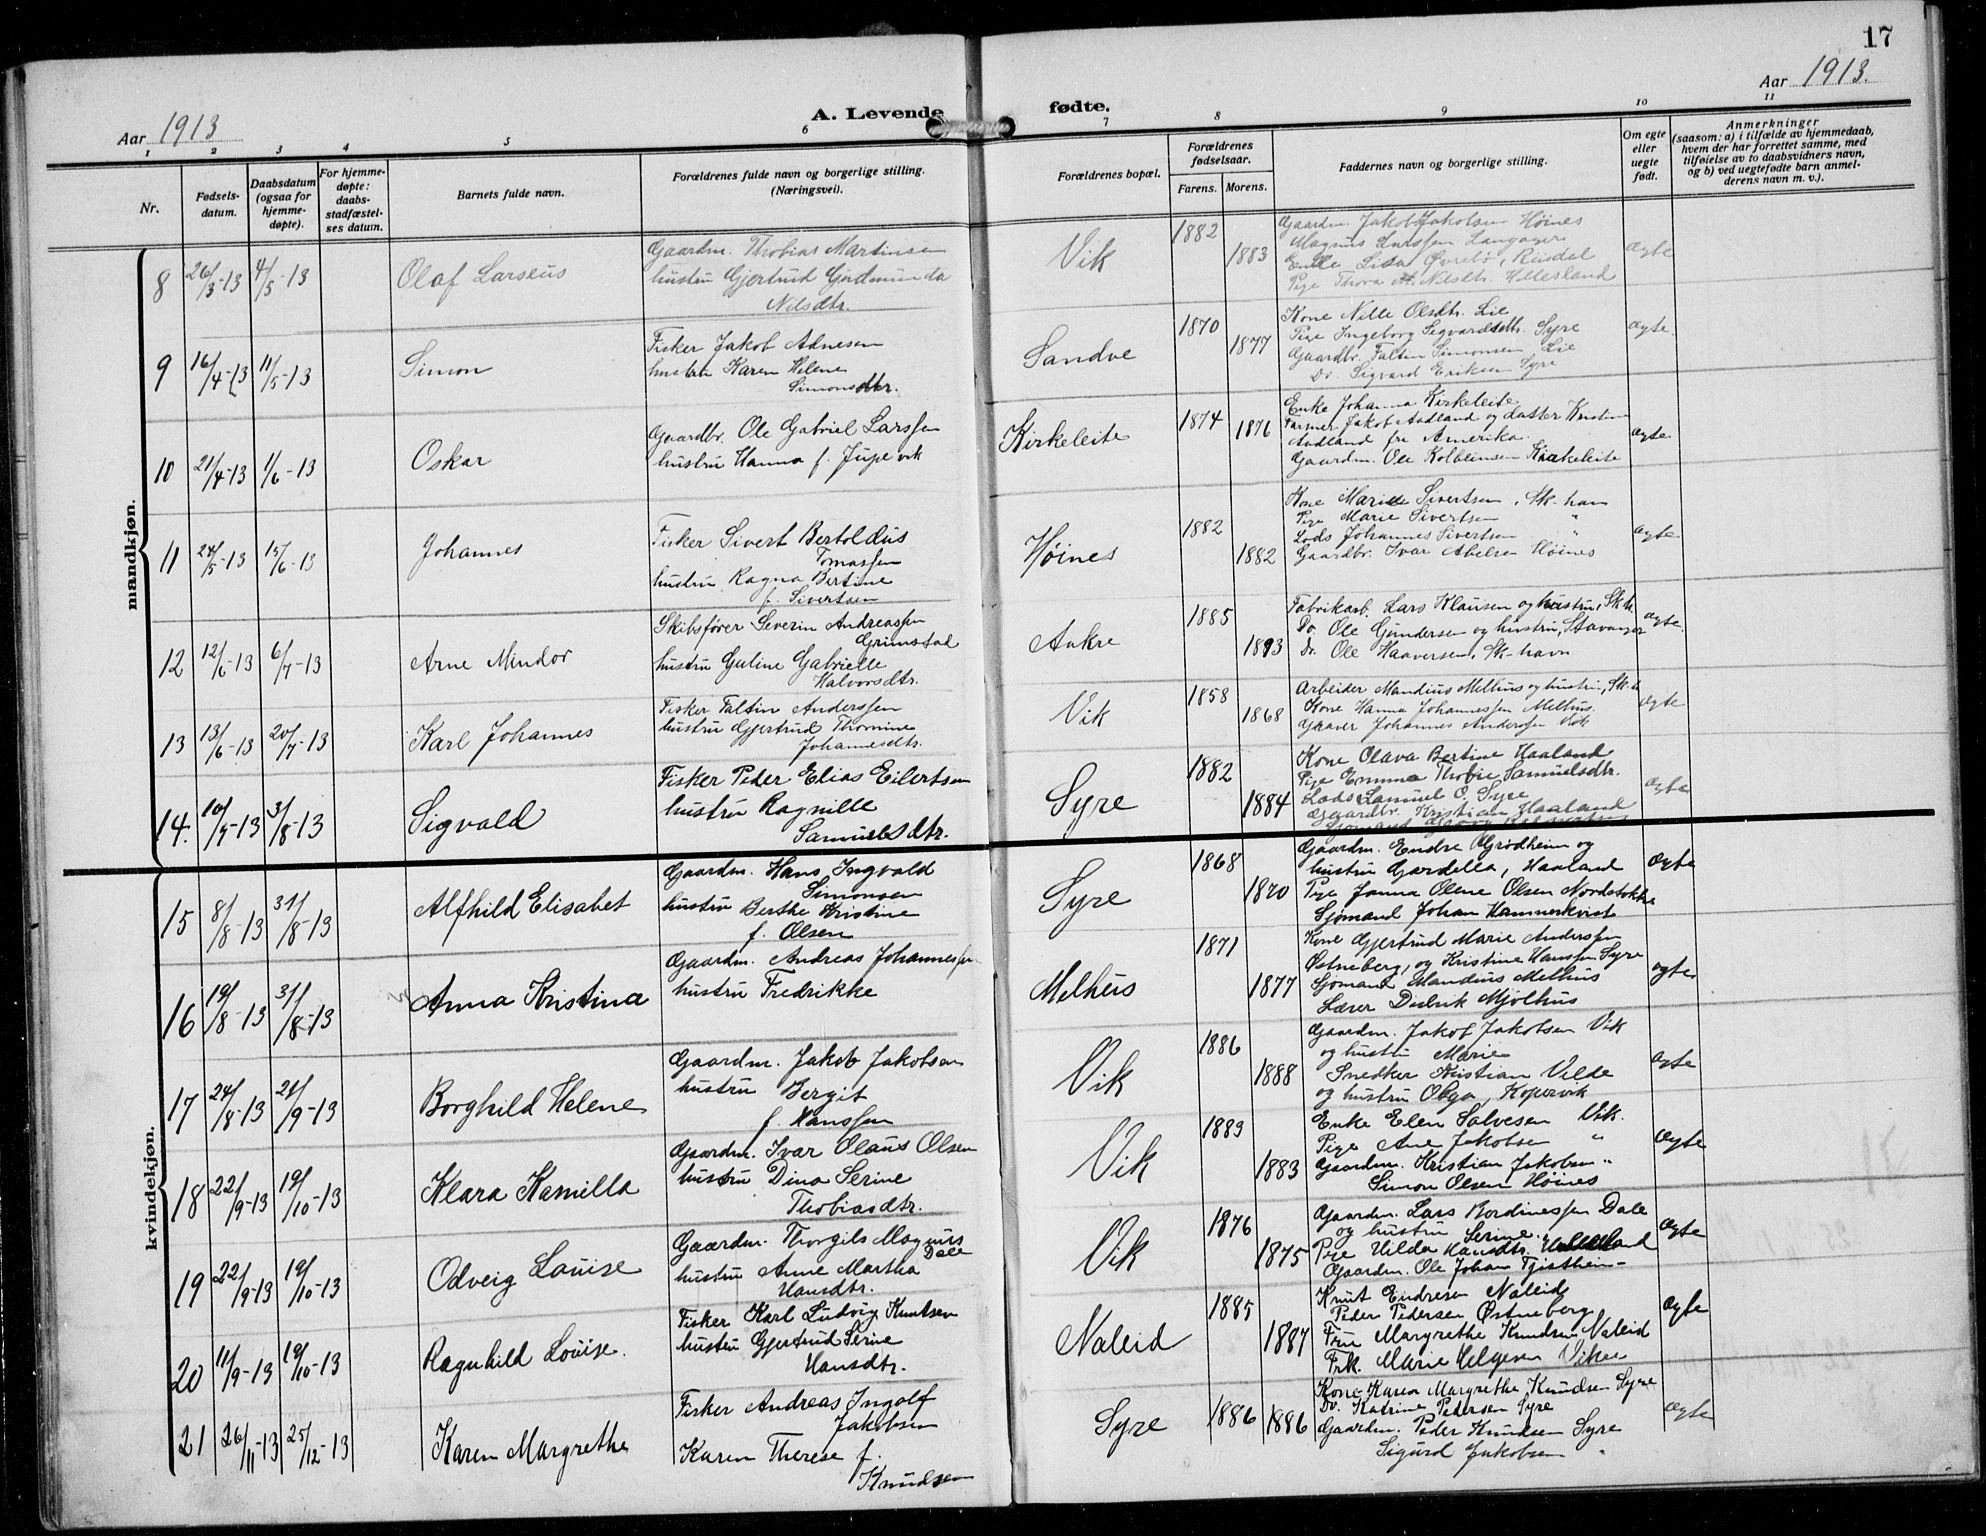 17
Aar 1913
A. Levende fødte.
Aar 1913.
1 2 3 4 5 6 7 8 9 10 11
Nr.
Fødsels-
datum.
Daabsdatum
(ogsaa for
hjemme-
døpte).
For hjemme-
døpte:
daabs-
stadfæstel-
ses datum.
Barnets fulde navn.
Forældrenes fulde navn og borgerlige stilling.
(Næringsvei).
Forældrenes bopæl.
Forældrenes
fødselsaar.
Farens. Morens.
Faddernes navn og borgerlige stilling.
Om egte
eller
uegte
født.
Anmerkninger
(saasom: a) i tilfælde av hjemmedaab,
hvem der har forrettet samme, med
tilføielse av to daabsvidners navn,
og b) ved uegtefødte barn anmel-
derens navn m. v.).
mandkjøn.
8 26/3-13 4/5-13 Olaf Larseus
Gaardm. Thobias Martinsen
hustru Gjertrud Gudmunda
Nilsdtr.
Vik 1882 1883
Gaardm. Jakob Jakobsen Høines
Magnus Larssen Langager
Enke Lisa Øvrebø, Risdal
Pige Thora M. Nilsdtr. Hellesland
ægte
9 16/4-13 11/5-13 Simon
Fisker Jakob Adnesen
hustru Karen Helene
Simonsdtr.
Sandve 1870 1877
Kone Nille Olsdtr. Lie
Pige Ingeborg Sigvardsdtr. Syre
Gaardbr. Faltin Simonsen Lie
Do. Sigvard Eriksen Syre
ægte
10 21/4-13 1/6-13 Oskar
Gaardbr. Ole Gabriel Larssen
hustru Hanna f. Jupevik
Kirkeleite 1874 1876
Enke Johanna Kirkeleite
Farmer Jakob Aadland og datter Kristine
Aadland fra Amerika.
Gaardm. Ole Kolbeinsen Kirkeleite
ægte
11 24/5-13 15/6-13 Johannes
Fisker Sivert Bertoldus
Tomassen
hustru Ragna Bertine
f. Sivertsen
Høines 1882 1882
Kone Marie Sivertsen, Sk-havn
Pige Marie Sivertsen "
Lods Johannes Sivertsen "
Gaardbr. Ivar Abelsen Høines
ægte
12 12/6-13 6/7-13 Arne Mindor
Skibsfører Severin Andreassen
Grimstad
hustru Guline Gabrielle
Halvorsdtr.
Aukre 1885 1893
Fabrikarb. Lars Klausen og hustru, Sk.h.
Do. Ole Gundersen og hustru, Stavanger
Do. Ole Haaversen, Sk-havn
ægte.
13 13/6-13 20/7-13 Karl Johannes
Fisker Faltin Anderssen
hustru Gjertrud Thomine
Johannesdtr.
Vik 1858 1868
Arbeider Mandius Melhus og hustru, Sk.h
Kone Hanna Johannessen Melhus.
Johannes Anderssen Vik
ægte
14. 10/7-13 3/8-13 Sigvald
Fisker Peder Elias Eilertsen
hustru Ragnille
Samuelsdtr.
Syre 1882 1884
Kone Olava Bertine Haaland
Pige Emma Thobie Samuelsdtr.
Lods Samuel O. Syre
Gaardbr. Kristian Haaland
ægte
kvindekjøn.
15 8/8-13 31/8-13 Alfhild Elisabet
Gaardm. Hans Ingvald
Simonsen
hustru Berthe Kristine
f. Olsen
Syre 1868 1870
Gaardm. Endre Grødheim og
hustru Gardella, Haaland
Pige Janna Olene Olsen Nordstokke
Sjømand Johan Hammerkvist
ægte
16 19/8-13 31/8-13 Anna Kristina
Gaardm. Andreas Johannessen
hustru Fredrikke
Melhus 1871 1877
Kone Gjertrud Marie Anderssen
Østneberg, og Kristine Hanssen Syre
Sjømand Mandius Melhus
Lærer Didrik Mjølhus
ægte
17 24/8-13 21/9-13 Borghild Helene
Gaardm. Jakob Jakobsen
hustru Bergit
f. Hanssen
Vik 1886 1888
Gaardm. Jakob Jakobsen Vik
og hustru Marie
Snedker Kristian Velde
og hustru Olga, Kopervik
ægte
18 22/9-13 19/10-13 Klara Kamilla
Gaardm. Ivar Olaus Olsen
hustru Dina Serine
Thobiasdtr.
Vik 1889 1883
Enke Elen Salvesen Vik.
Pige Ane Jakobsen "
Gaardm. Kristian Jakobsen "
Simon Olsen Høines
ægte
19 22/9-13 19/10-13 Odveig Louise
Gaardm. Thorgils Magnus
Dale
hustru Anne Martha
Hansdtr.
Vik 1876 1875
Gaardm. Lars Bordinessen Dale
og hustru Serine.
Pige Hilda Hansdtr.
Gaardm. Ole Johan
ægte
20 11/9-13 19/10-13 Ragnhild Louise.
Fisker Karl Ludvig Knutsen
hustru Gjertrud Serine
Hansdtr.
Naleid 1885 1887
Knut Endresen Naleid
Peder Pedersen Østneberg
Fru Margrethe Knudsen Naleid
Frk. Marie Helgesen Vikse
ægte
21 26/11-13 25/12-13 Karen Margrethe
Fisker Andreas Ingolf
Jakobsen
Karen Therese f.
Knudsen
Syre 1886 1886
Kone Karen Margrethe Knudsen Syre
Do. Katrine Pedersen Syre
Gaardm. Peder Knudsen Syre
Sigurd Jakobsen "
ægte